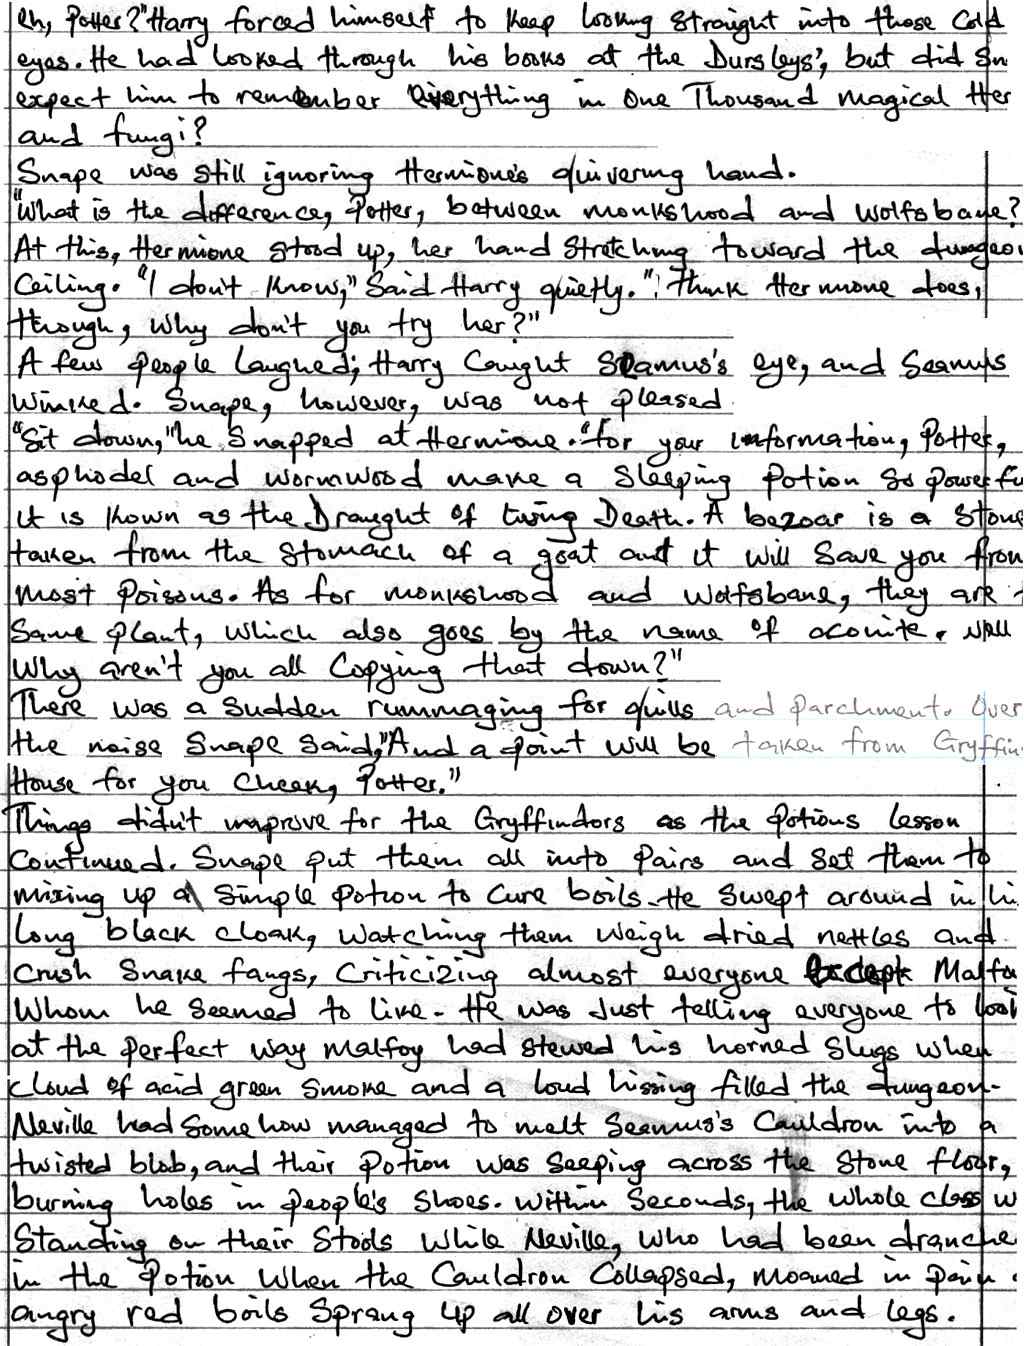 Eh, Potter?" Harry forced himself to keep looking straight into those cold
eyes. He had looked through his books at the Dursleys', but did Sn
expect him to remember everything in One Thousand magical Her
and fungi?
Snape was still ignoring Hermione's quivering hand.
"What is the difference, Potter, between monkshood and wolfsbane?
At this, Hermione stood up, her hand stretching toward the dungeo
Ceiling. "I don't know," Said Harry quietly. "I think Hermione does,
though, why don't you try her?"
A few people laughed; Harry caught Seamus's eye, and Seamus
winked. Snape, however, was not pleased
"Sit down," he Snapped at Hermione. "for your information, Potter,
asphodel and wormwood make a Sleeping Potion So powerfu
it is known as the Draught of Living Death. A bezoar is a stone
taken from the stomach of a goat and it will save you from
most poisons. As for monkshood and wolfsbane, they are t
Same plant, which also goes by the name of aconite. Well
Why aren't you all Copying that down?"
There was a sudden rummaging for quills and parchment. Over
the noise Snape said, "And a point will be taken from Gryffin
House for you cheek, Potter."
Things didn't improve for the Gryffindors as the potions lesson
continued. Snape put them all into pairs and set them to
mixing up a simple potion to cure boils. He swept around in hi
long black cloak, watching them weigh dried nettles and
crush Snake fangs, criticizing almost everyone except Malfo
Whom he seemed to like. He was Just telling everyone to look
at the perfect way Malfoy had stewed his horned slugs when
cloud of acid green smoke and a loud hissing filled the dungeon.
Neville had somehow managed to melt Seamus's Cauldron into a
twisted blob, and their potion was seeping across the stone floor,
burning holes in people's shoes. Within seconds, the whole class w
Standing on their Stools while Neville, who had been dranche
in the potion when the Cauldron Collapsed, moaned in pain
angry red boils Sprang up all over his arms and legs.